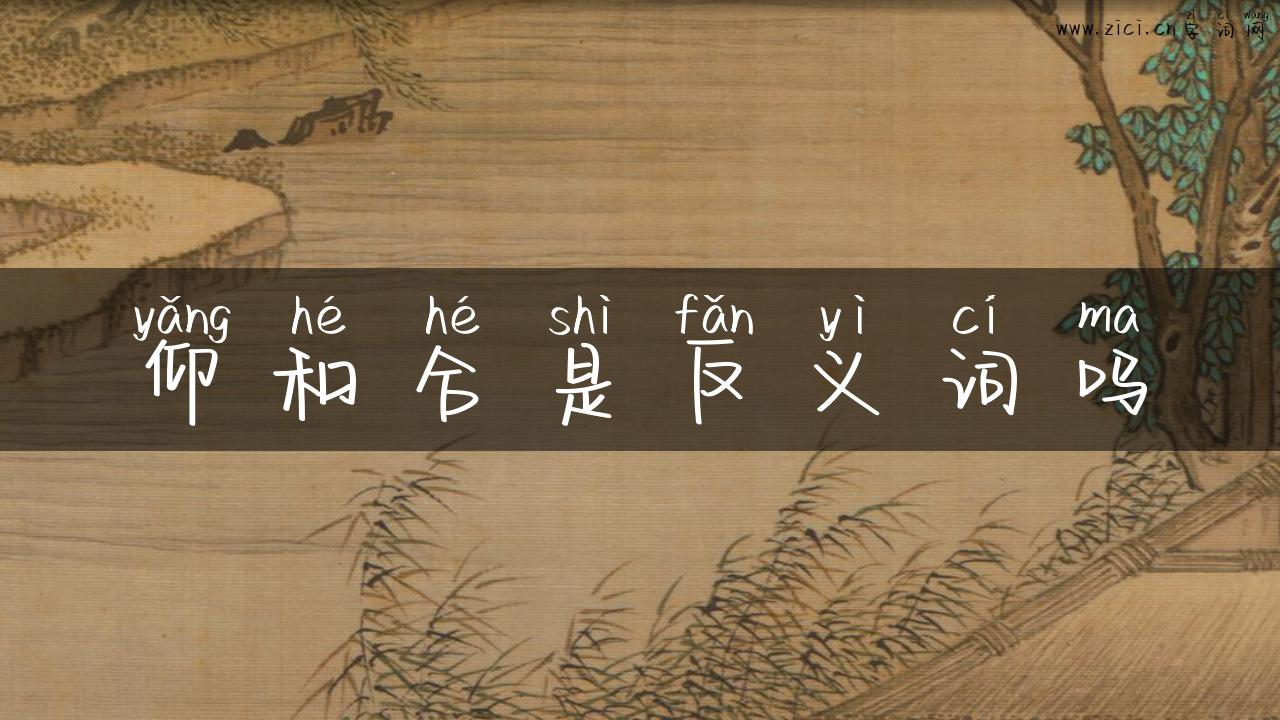 zì cí wǎng
www.zici.cn字词网
yǎng hé hé shì fǎn yì cí ma
仰和合是反义词吗